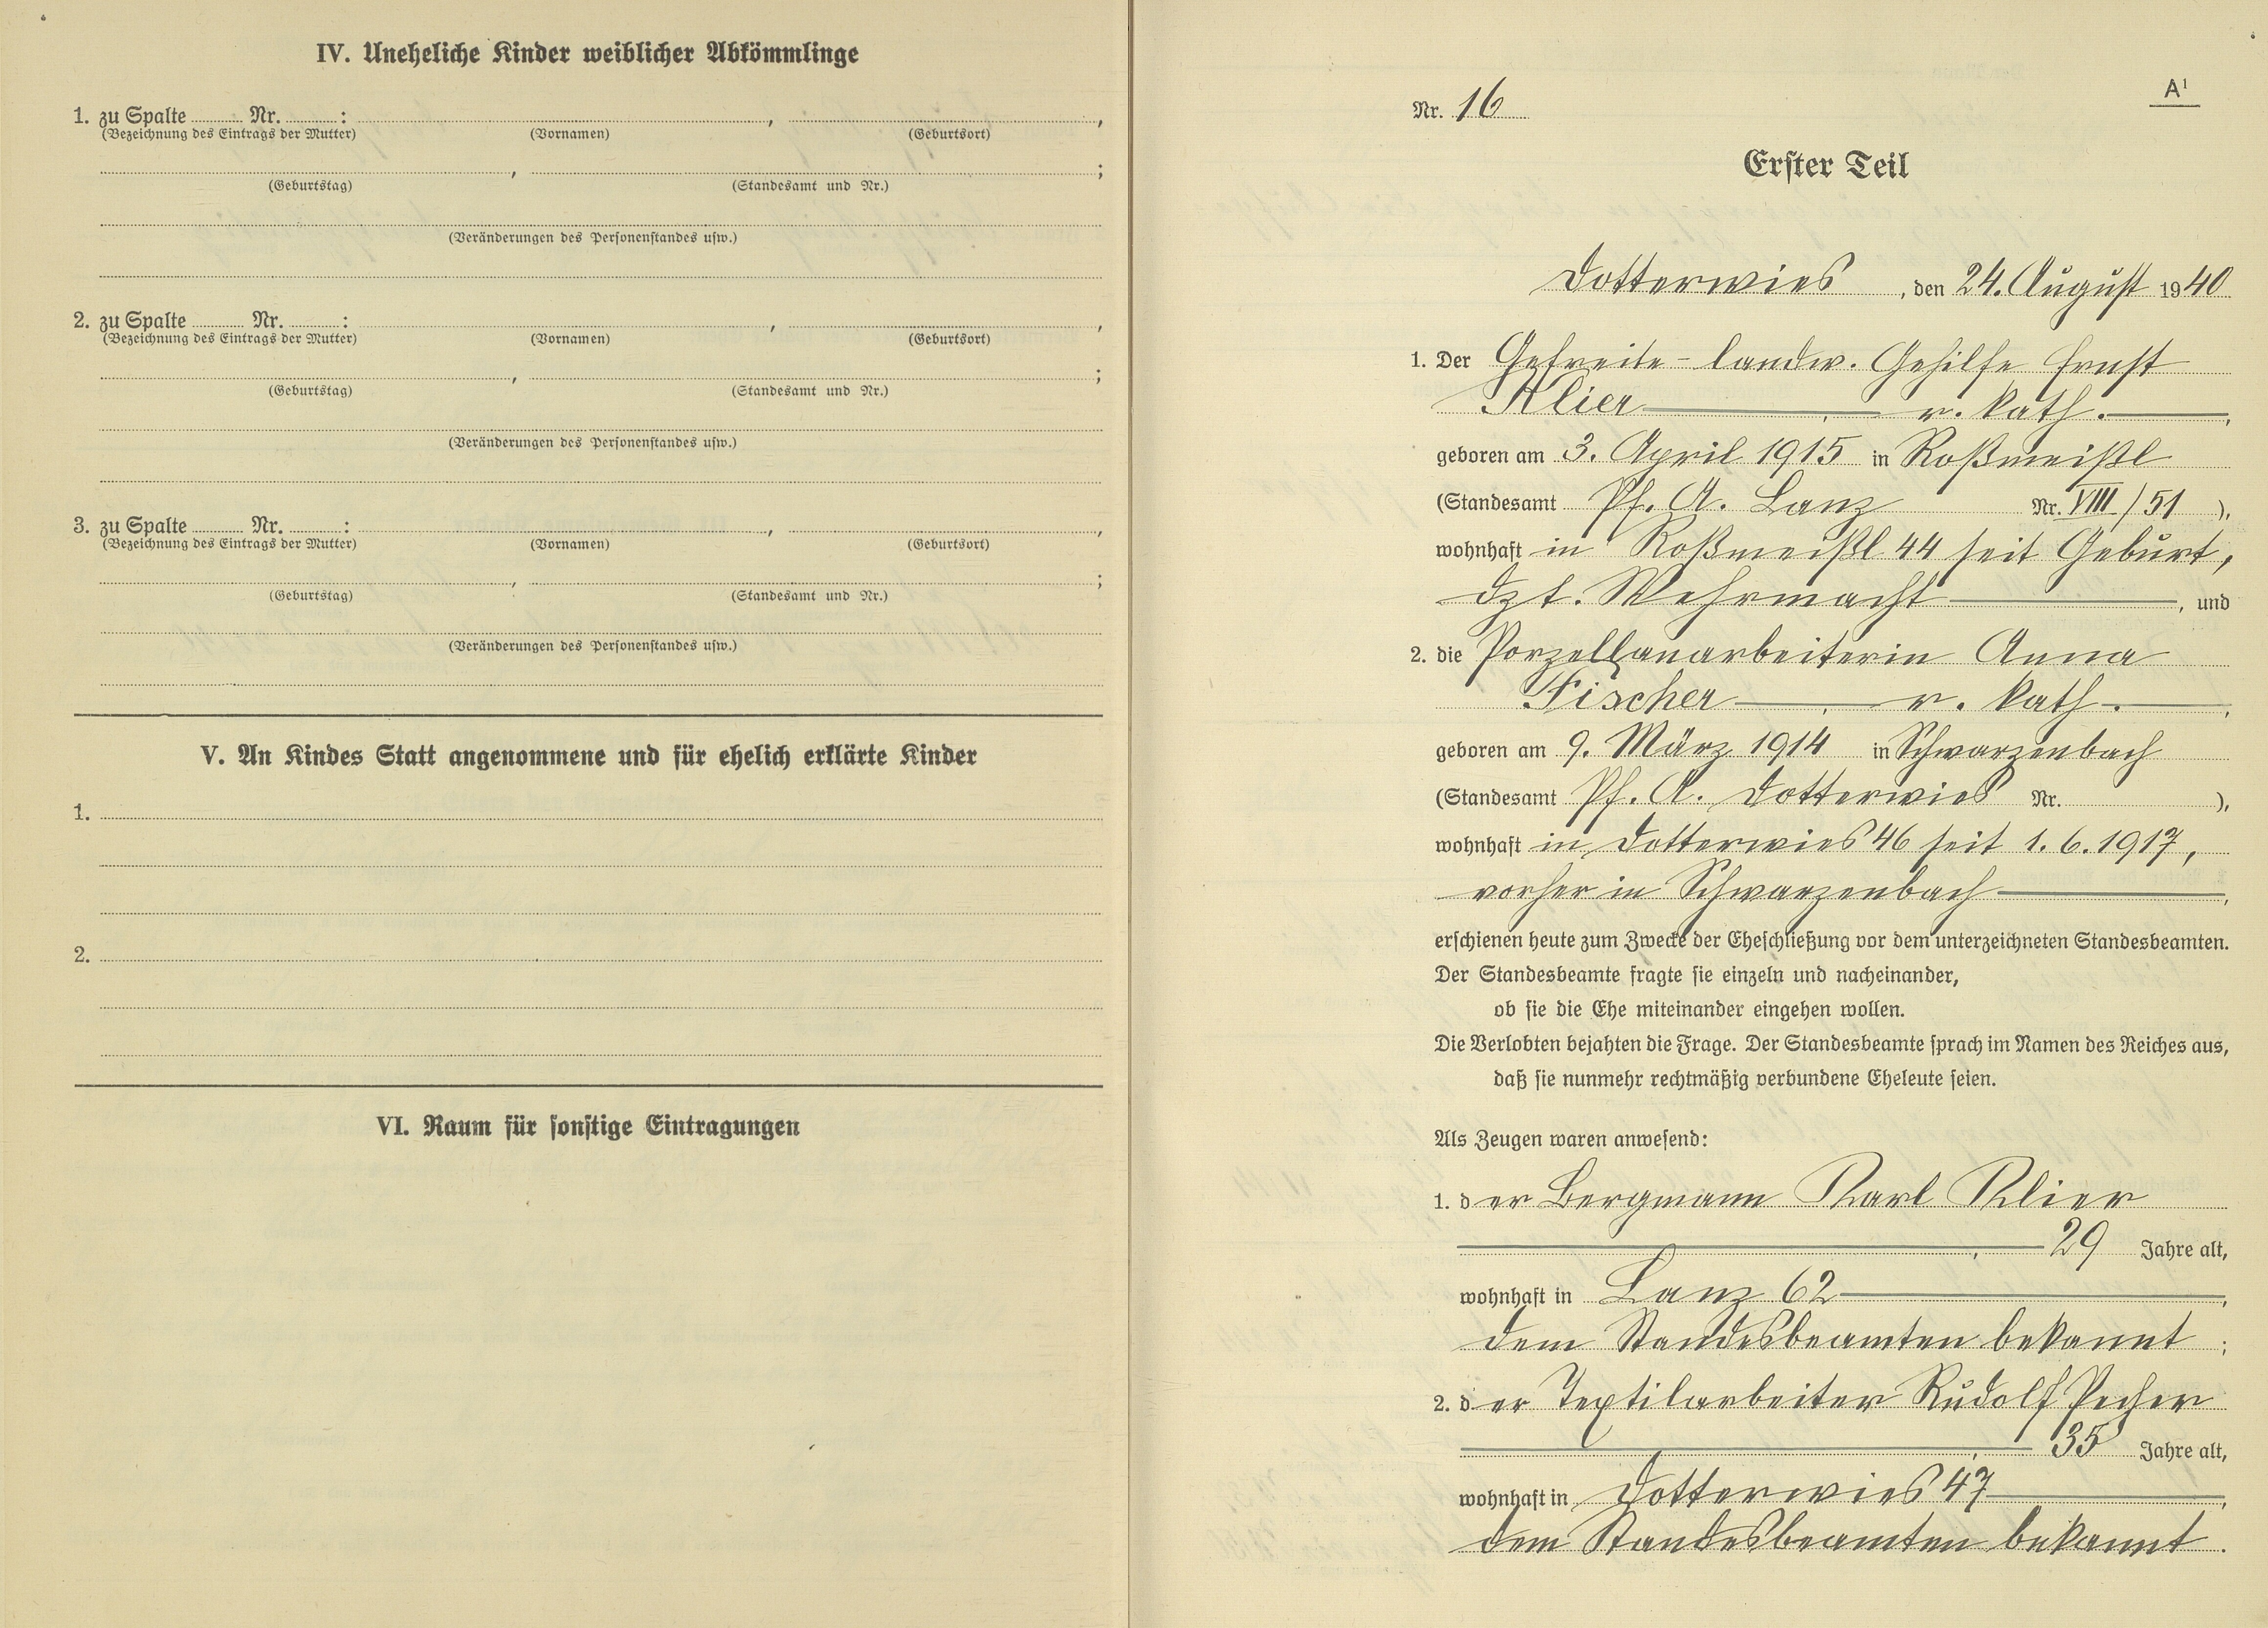 IV. Uneheliche Kinder weiblicher Abkömmlinge
1. zu Spalte Nr. : , ,
(Bezeichnung des Eintrags der Mutter) (Vornamen) (Geburtsort)
, ;
(Geburtstag) (Standesamt und Nr.)
(Veränderungen des Personenstandes usw.)
2. zu Spalte Nr. : , ,
(Bezeichnung des Eintrags der Mutter) (Vornamen) (Geburtsort)
, ;
(Geburtstag) (Standesamt und Nr.)
(Veränderungen des Personenstandes usw.)
3. zu Spalte Nr. : , ,
(Bezeichnung des Eintrags der Mutter) (Vornamen) (Geburtsort)
, ;
(Geburtstag) (Standesamt und Nr.)
(Veränderungen des Personenstandes usw.)
V. An Kindes Statt angenommene und für ehelich erklärte Kinder
1.
2.
VI. Raum für sonstige Eintragungen
A¹
Nr. 16
Erster Teil
Dotterwies, den 24. August 1940
1. Der Gefreite - landw. Gehilfe Ernst
Klier, r. kath.,
geboren am 3. April 1915 in Roßmeißl
(Standesamt Pf. A. Lanz Nr. VIII/51),
wohnhaft in Roßmeißl 44 seit Geburt,
dzt. Wehrmacht, und
2. die Porzellanarbeiterin Anna
Fischer, r. kath.,
geboren am 9. März 1914 in Schwarzenbach
(Standesamt Pf. A. Dotterwies Nr. ),
wohnhaft in Dotterwies 46 seit 1. 6. 1917,
vorher in Schwarzenbach,
erschienen heute zum Zwecke der Eheschließung vor dem unterzeichneten Standesbeamten.
Der Standesbeamte fragte sie einzeln und nacheinander,
ob sie die Ehe miteinander eingehen wollen.
Die Verlobten bejahten die Frage. Der Standesbeamte sprach im Namen des Reiches aus,
daß sie nunmehr rechtmäßig verbundene Eheleute seien.
Als Zeugen waren anwesend:
1. der Bergmann Karl Klier
, 29 Jahre alt,
wohnhaft in Lanz 62,
dem Standesbeamten bekannt;
2. der Textilarbeiter Rudolf Pecher
, 35 Jahre alt,
wohnhaft in Dotterwies 47,
dem Standesbeamten bekannt.